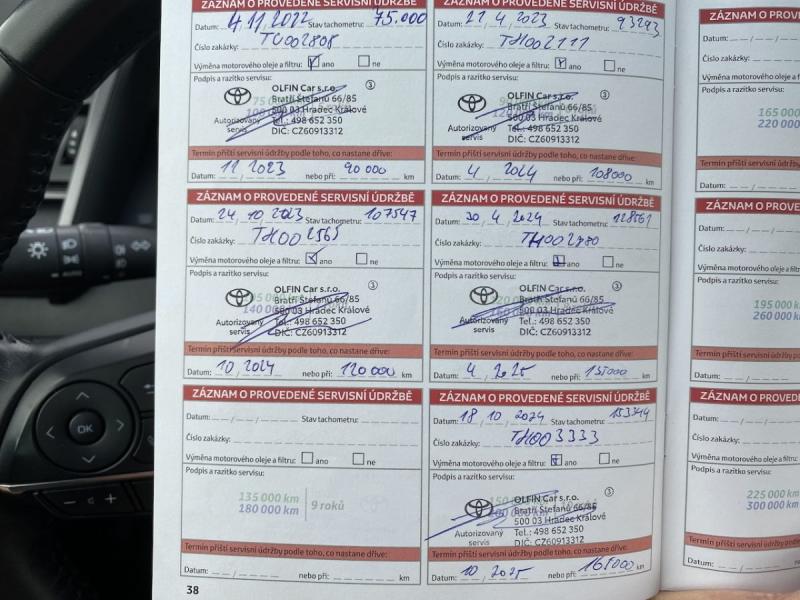 ZÁZNAM O PROVEDENÉ SERVISNÍ ÚDRŽBĚ
Datum: 4.11.2022 Stav tachometru: 75.000
Číslo zakázky: TU002808
Výměna motorového oleje a filtru: ano ne
Podpis a razítko servisu:
3
OLFIN Car s.r.o.
Bratří Štefanů 66/85
500 03 Hradec Králové
Autorizovaný servis
Tel.: 498 652 350
DIČ: CZ60913312
Termín příští servisní údržby podle toho, co nastane dříve:
Datum: 11 2023 nebo při: 90 000 km
ZÁZNAM O PROVEDENÉ SERVISNÍ ÚDRŽBĚ
Datum: 21 4 2023 Stav tachometru: 93293
Číslo zakázky: TH002111
Výměna motorového oleje a filtru: ano ne
Podpis a razítko servisu:
3
OLFIN Car s.r.o.
Bratří Štefanů 66/85
500 03 Hradec Králové
Autorizovaný servis
Tel.: 498 652 350
DIČ: CZ60913312
Termín příští servisní údržby podle toho, co nastane dříve:
Datum: 4 2024 nebo při: 108000 km
ZÁZNAM O PROVEDENÉ SERVISNÍ ÚDRŽBĚ
Datum: 24 10 2023 Stav tachometru: 107547
Číslo zakázky: TH002565
Výměna motorového oleje a filtru: ano ne
Podpis a razítko servisu:
3
OLFIN Car s.r.o.
Bratří Štefanů 66/85
500 03 Hradec Králové
Autorizovaný servis
Tel.: 498 652 350
DIČ: CZ60913312
Termín příští servisní údržby podle toho, co nastane dříve:
Datum: 10 2024 nebo při: 120 000 km
ZÁZNAM O PROVEDENÉ SERVISNÍ ÚDRŽBĚ
Datum: 30 4 2024 Stav tachometru: 128561
Číslo zakázky: TH002780
Výměna motorového oleje a filtru: ano ne
Podpis a razítko servisu:
3
OLFIN Car s.r.o.
Bratří Štefanů 66/85
500 03 Hradec Králové
Autorizovaný servis
Tel.: 498 652 350
DIČ: CZ60913312
Termín příští servisní údržby podle toho, co nastane dříve:
Datum: 4 2025 nebo při: 135000 km
ZÁZNAM O PROVEDENÉ SERVISNÍ ÚDRŽBĚ
Datum: Stav tachometru:
Číslo zakázky:
Výměna motorového oleje a filtru: ano ne
Podpis a razítko servisu:
135 000 km
180 000 km
9 roků
Termín příští servisní údržby podle toho, co nastane dříve:
Datum: nebo při: km
ZÁZNAM O PROVEDENÉ SERVISNÍ ÚDRŽBĚ
Datum: 18 10 2024 Stav tachometru: 153344
Číslo zakázky: TH003333
Výměna motorového oleje a filtru: ano ne
Podpis a razítko servisu:
3
OLFIN Car s.r.o.
Bratří Štefanů 66/85
500 03 Hradec Králové
Autorizovaný servis
Tel.: 498 652 350
DIČ: CZ60913312
Termín příští servisní údržby podle toho, co nastane dříve:
Datum: 10 2025 nebo při: 165000 km
38
ZÁZNAM O P
Datum:
Číslo zakázky:
Výměna motorov
Podpis a razítko
165 000
220 000
Termín příští ser
Datum:
ZÁZNAM O
Datum:
Číslo zakázky:
Výměna motoro
Podpis a razítko
195 000
260 000
Termín příští se
Datum:
ZÁZNAM O
Datum:
Číslo zakázky:
Výměna motor
Podpis a razítk
225 000
300 000
Termín příští s
Datum:
OK
AUTO